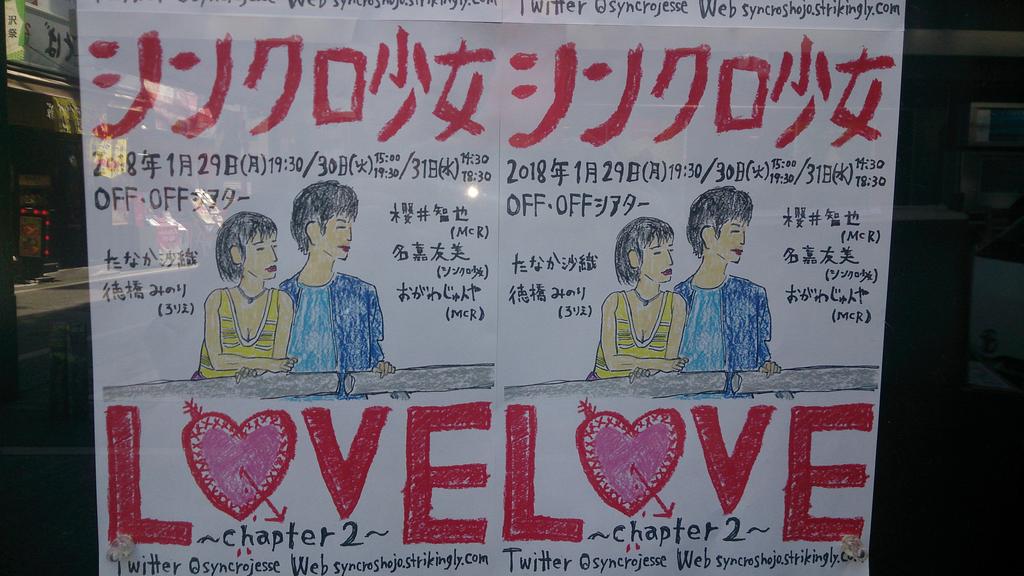 Twitter @syncrojesse Web syncroshojo.strikingly.com
Twitter @syncrojesse Web syncroshojo.strikingly.com
シンクロ少女
2018年1月29日(月)19:30/30日(火)15:00 19:30/31日(水)14:30 18:30
OFF・OFFシアター
櫻井智也
(MCR)
名嘉友美
(シンクロ少女)
おがわじゅんや
(MCR)
たなか沙織
徳橋みのり
(ろりえ)
LOVE
~chapter 2~
Twitter @syncrojesse Web syncroshojo.strikingly.com
シンクロ少女
2018年1月29日(月)19:30/30日(火)15:00 19:30/31日(水)14:30 18:30
OFF・OFFシアター
櫻井智也
(MCR)
名嘉友美
(シンクロ少女)
おがわじゅんや
(MCR)
たなか沙織
徳橋みのり
(ろりえ)
LOVE
~chapter 2~
Twitter @syncrojesse Web syncroshojo.strikingly.com